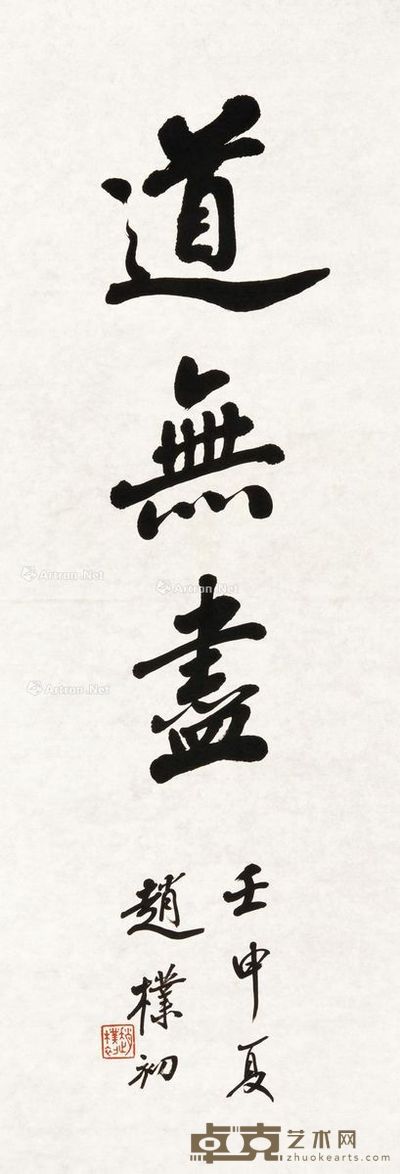 道無盡
壬申夏
趙樸初
趙樸初
Artron.Net
Artron.Net
Artron.Net
卓克艺术网
zhuokearts.com